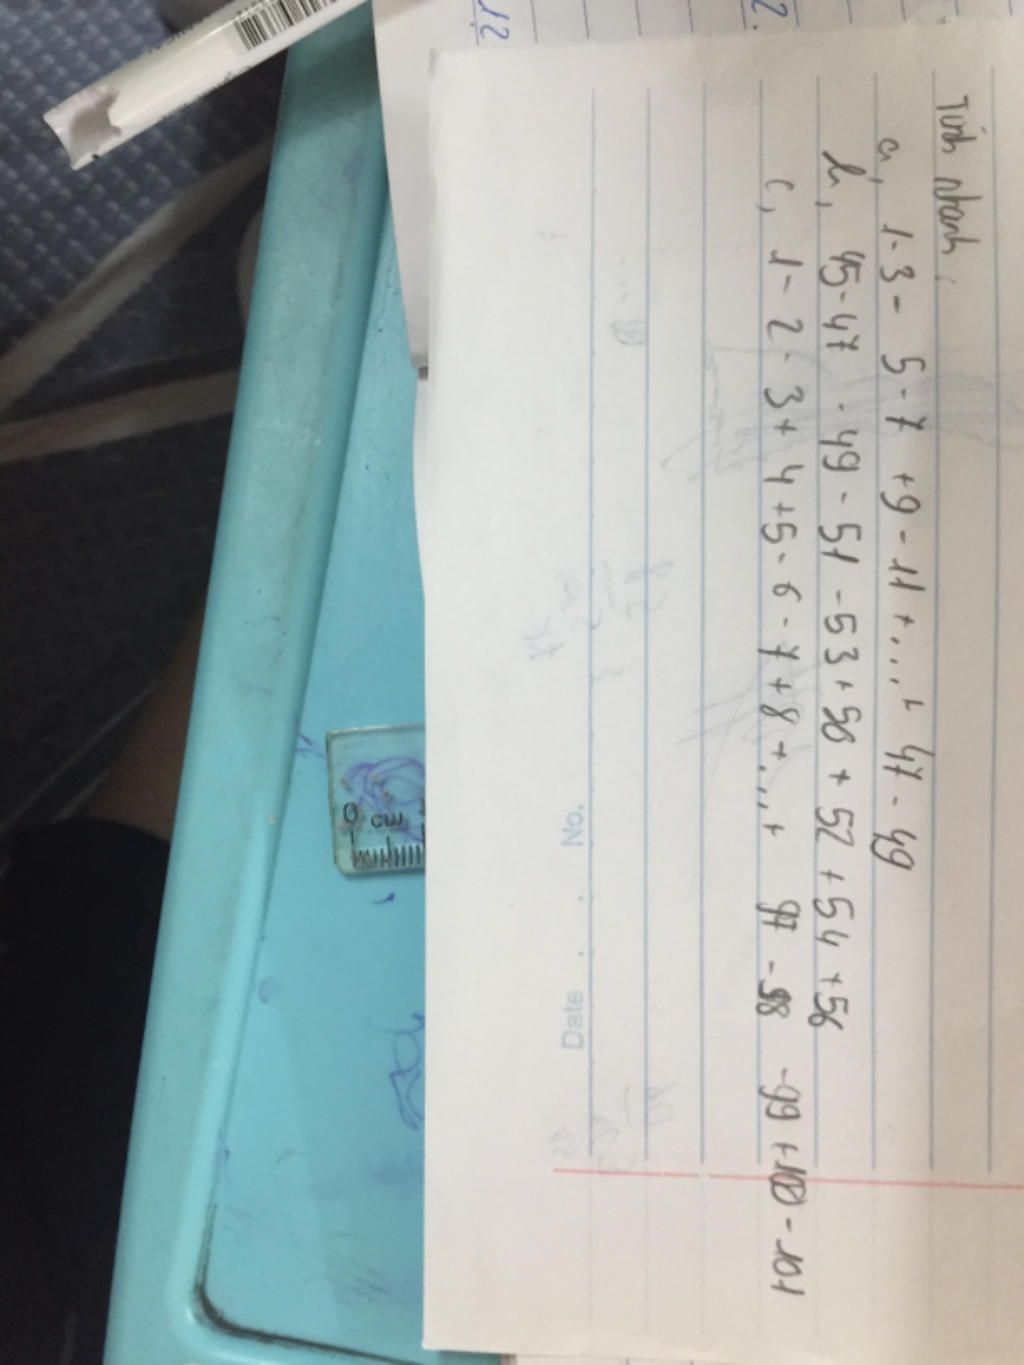 Tính nhanh:
a, 1-3 - 5-7 +9 - 11 +...+ 47 - 49
b, 45-47 - 49 - 51 - 53 + 50 + 52 + 54 + 56
c, 1 - 2 - 3 + 4 +5 - 6 - 7 + 8 +...+ 97 - 98 - 99 + 100 - 101
No.
Date . .
0 cm
12
2.